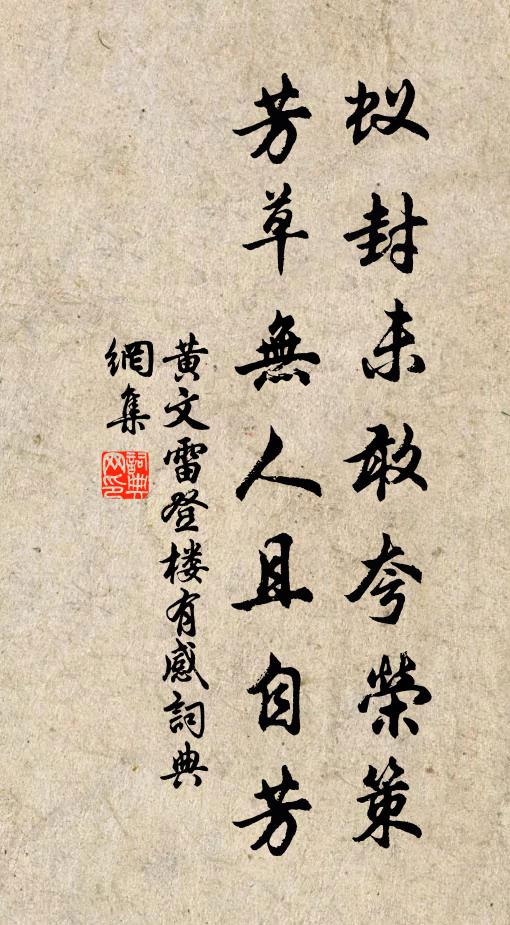 蚁封未敢夸榮策
芳草無人且自芳
黄文雷登楼有感詞典
網集
詞典
网印